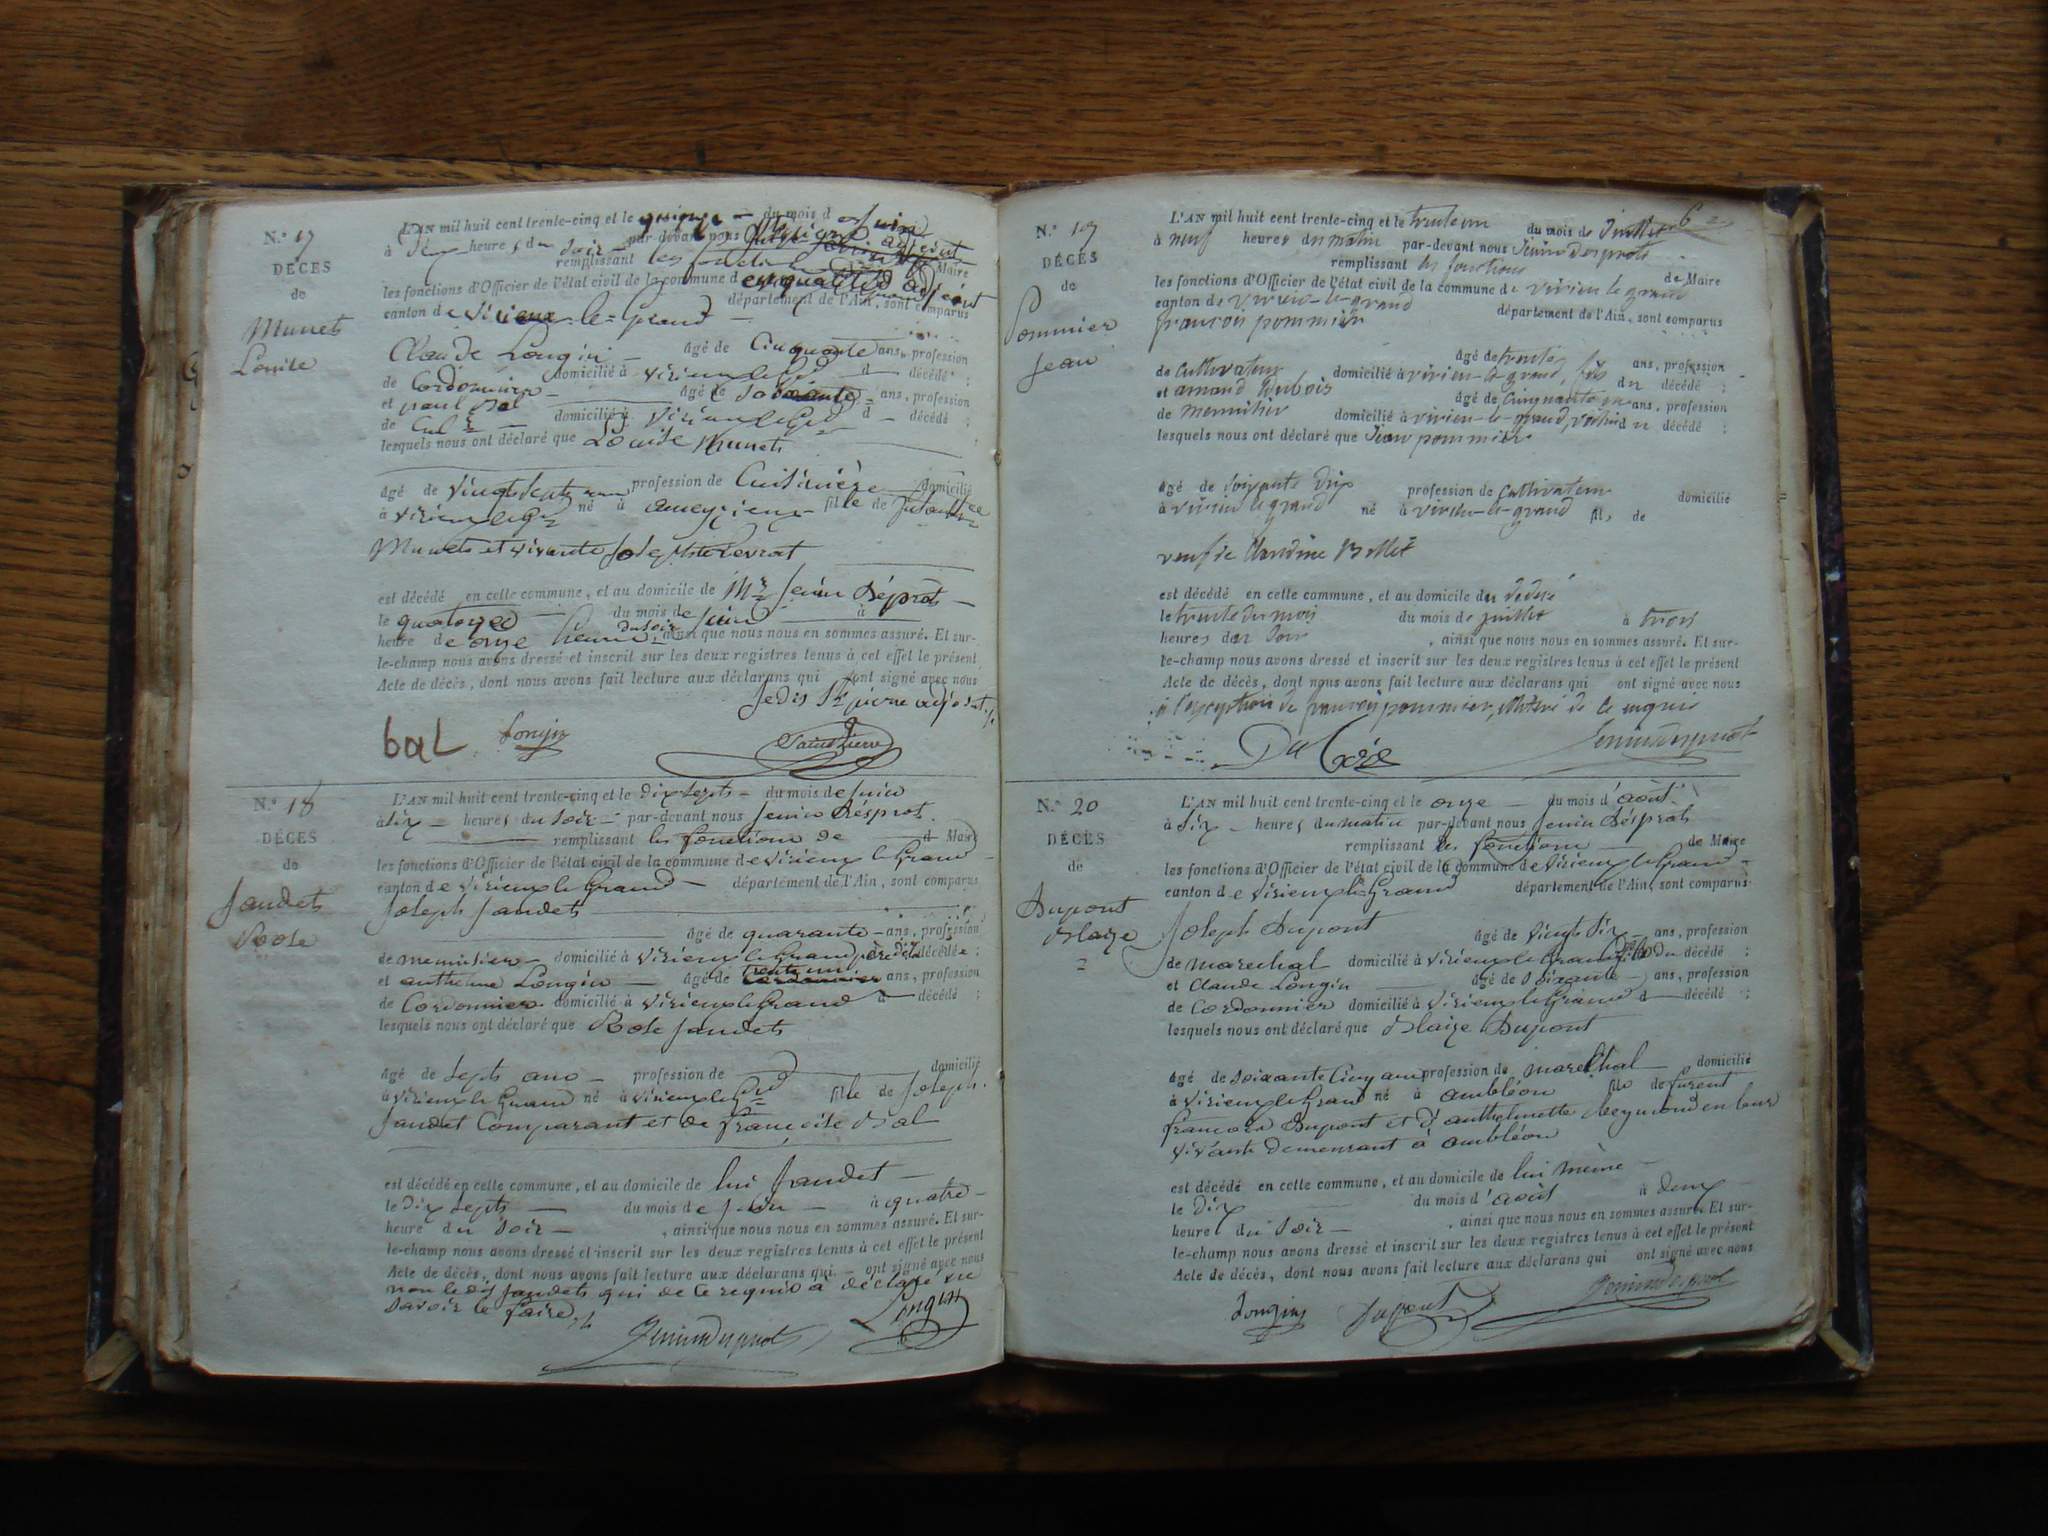 N.° 17
DÉCÈS
de
Munets
Louise
L'AN mil huit cent trente-cinq et le quinze du mois de Juin
à Six heures du soir par-devant nous
remplissant les fonctions Maire
les fonctions d'Officier de l'état civil de la commune d en qualité d'adjoint
canton de Virieux-le-Grand département de l'Ain, sont comparus
Claude Longin âgé de Cinquante ans, profession
de Cordonnier domicilié à Virieux le Gd d décédé ;
et paul Bal âgé de Soixante ans, profession
de Cul.r domicilié à Virieux le Gd d décédé ;
lesquels nous ont déclaré que Louise Munets
Agé de vingt sept ans profession de Cuisinière domicilié
à Virieux le Gd né à ameyzieux fille de
Munets et vivante
est décédé en cette commune, et au domicile de Mr Jenin Désprot
le quatorze du mois de Juin à
heure de onze heures du soir, ainsi que nous nous en sommes assuré. Et sur-
le-champ nous avons dressé et inscrit sur les deux registres tenus à cet effet le présent
Acte de décès, dont nous avons fait lecture aux déclarans qui ont signé avec nous
Jedis St pierre adjoint
bal Longin Saint Pierre
N.° 18
DÉCÈS
de
Jandets
Rose
L'AN mil huit cent trente-cinq et le dix Septs du mois de Juin
à Six heures du Soir par-devant nous Jenin Désprot
remplissant les fonctions de d Maire
les fonctions d'Officier de l'état civil de la commune de Virieux le Grand
canton de Virieux le Grand département de l'Ain, sont comparus
Joseph Jandets
âgé de quarante ans, profession
de menuisier domicilié à Virieux le Grand père de la décédée ;
et anthelme Longin âgé de trente un ans, profession
de Cordonnier domicilié à Virieux le Grand d décédé ;
lesquels nous ont déclaré que Rose Jandets
Agé de Septs ans profession de domicilié
à Virieux le Grand né à Virieux le Grd fille de Joseph
Jandet Comparant et de françoise Bal
est décédé en cette commune, et au domicile de lui Jandet
le Dix Septs du mois de Juin à quatre
heure du Soir, ainsi que nous nous en sommes assuré. Et sur-
le-champ nous avons dressé et inscrit sur les deux registres tenus à cet effet le présent
Acte de décès, dont nous avons fait lecture aux déclarans qui ont signé avec nous
non ledis Jandets qui de ce requis à déclaré ne
savoir le faire
Jenin Desprot Longin
N.° 19
DÉCÈS
de
Pommier
Jean
6
L'AN mil huit cent trente-cinq et le trente un du mois de Juillet
à neuf heures du matin par-devant nous Jenin Desprots
remplissant les fonctions de Maire
les fonctions d'Officier de l'état civil de la commune de virieu le grand
canton de virieu-le-grand département de l'Ain, sont comparus
francois pommier
âgé de trente ans, profession
de Cultivateur domicilié à virieu-le-grand, fils du décédé ;
et amand Dubois âgé de Cinquante un ans, profession
de Menuisier domicilié à virieu-le-grand, voisin du décédé ;
lesquels nous ont déclaré que Jean pommier
Agé de soixante Dix profession de Cultivateur domicilié
à virieu le grand né à virieu-le-grand fils de
veuf de Claudine Billet
est décédé en cette commune, et au domicile du décédé
le trente du mois du mois de juillet à trois
heures du Soir, ainsi que nous nous en sommes assuré. Et sur-
le-champ nous avons dressé et inscrit sur les deux registres tenus à cet effet le présent
Acte de décès, dont nous avons fait lecture aux déclarans qui ont signé avec nous
à l'exception de françois pommier, illiteré de ce enquis
Jenin Desprot
N.° 20
DÉCÈS
de
Dupont
Blaize
L'AN mil huit cent trente-cinq et le onze du mois d'août
à Six heures du matin par-devant nous Jenin Désprots
remplissant les fonctions de Maire
les fonctions d'Officier de l'état civil de la commune de Virieux le Grand
canton de Virieux le Grand département de l'Ain, sont comparus
Joseph Dupont âgé de vingt Six ans, profession
de marechal domicilié à Virieux le Grand fils du décédé ;
et Claude Longin âgé de Soixante ans, profession
de Cordonnier domicilié à Virieux le Grand d décédé ;
lesquels nous ont déclaré que Blaize Dupont
Agé de soixante Cinq ans profession de marechal domicilié
à Virieux le Grand né à ambléon fils de furent
francois Dupont et d'anthelmette Reymond en leur
vivant demeurant à ambléon
est décédé en cette commune, et au domicile de lui même
le Dix du mois d'août à deux
heures du Soir, ainsi que nous nous en sommes assuré. Et sur-
le-champ nous avons dressé et inscrit sur les deux registres tenus à cet effet le présent
Acte de décès, dont nous avons fait lecture aux déclarans qui ont signé avec nous
Longin Dupont Jenin Desprot